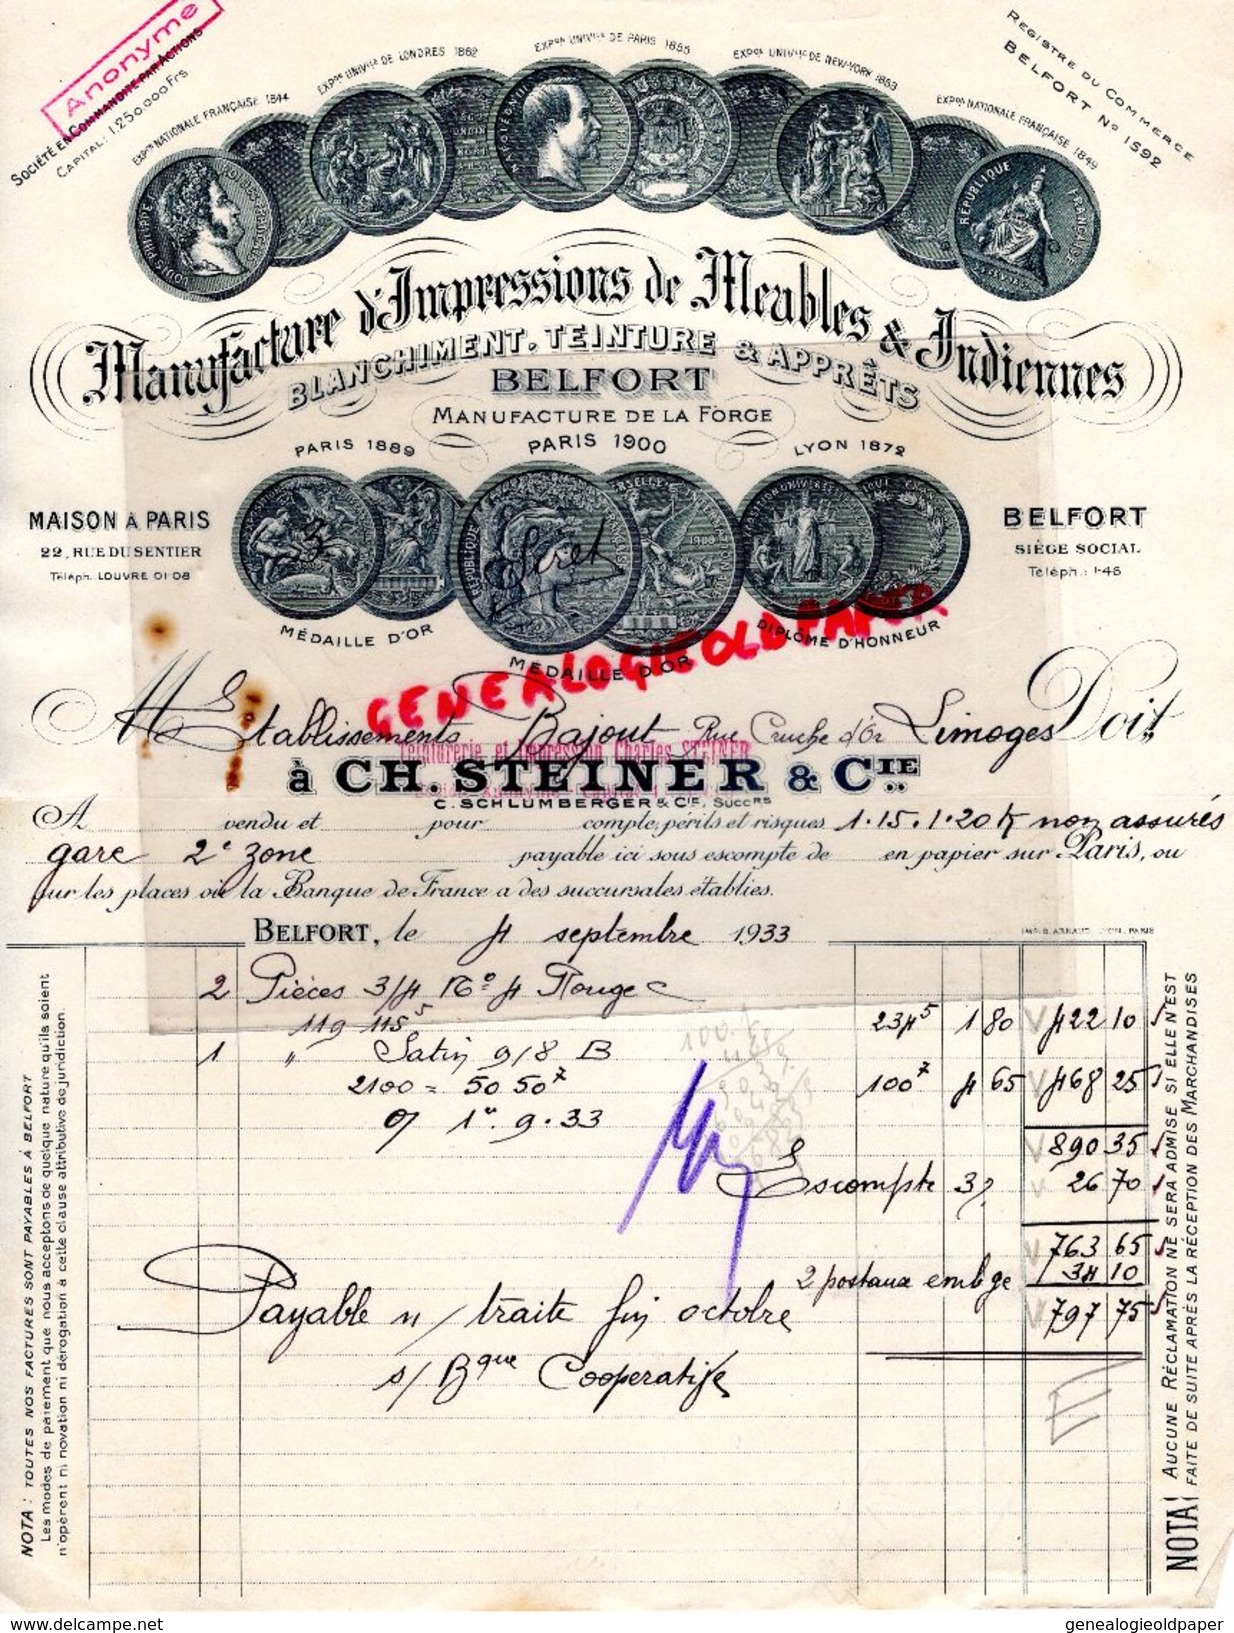 Anonyme
SOCIÉTÉ EN COMMANDITE PAR ACTIONS
CAPITAL : 1.250.000 Frs
REGISTRE DU COMMERCE
BELFORT No 1592
EXPon NATIONALE FRANÇAISE 1844
EXPon UNIVlle DE LONDRES 1862
EXPon UNIVlle DE PARIS 1855
EXPon UNIVlle DE NEW-YORK 1853
EXPon NATIONALE FRANÇAISE 1849
RÉPUBLIQUE FRANÇAISE
Manufacture d'Impressions de Meubles & Indiennes
BLANCHIMENT. TEINTURE & APPRÊTS
BELFORT
MANUFACTURE DE LA FORGE
PARIS 1889
PARIS 1900
LYON 1872
MAISON À PARIS
22, RUE DU SENTIER
Téléph. LOUVRE 01-08
BELFORT
SIÈGE SOCIAL
Téléph. : 1-46
MÉDAILLE D'OR
MÉDAILLE D'OR
DIPLÔME D'HONNEUR
GENEALOGIEOLDPAPER
M Etablissements Bajout Rue Cruche d'Or Limoges Doit
Teinturerie et Impression Charles STEINER
à CH. STEINER & CIE
C. SCHLUMBERGER & CIE, SUCCRS
A vendu et pour compte, périls et risques 1.15.1.20 K non assurés
gare 2e zone payable ici sous escompte de en papier sur Paris, ou
sur les places où la Banque de France a des succursales établies.
BELFORT, le 4 septembre 1933
IMP. B. ARNAUD, LYON, PARIS
2 Pièces 3/4 No 4 Rouge C
119 115 5 234 5 1 80 422 10
1 " Satin 9/8 B
2100 = 50 50 7 100 7 4 65 468 25
1er. 9. 33
890 35
Escompte 3% 26 70
763 65
2 postaux embge 34 10
Payable n/ traite fin octobre 797 75
s/ Bque Cooperative
NOTA : TOUTES NOS FACTURES SONT PAYABLES À BELFORT
Les modes de paiement que nous acceptons de quelque nature qu'ils soient
n'opèrent ni novation ni dérogation à cette clause attributive de juridiction.
NOTA ! AUCUNE RÉCLAMATION NE SERA ADMISE SI ELLE N'EST
FAITE DE SUITE APRÈS LA RÉCEPTION DES MARCHANDISES
genealogieoldpaper